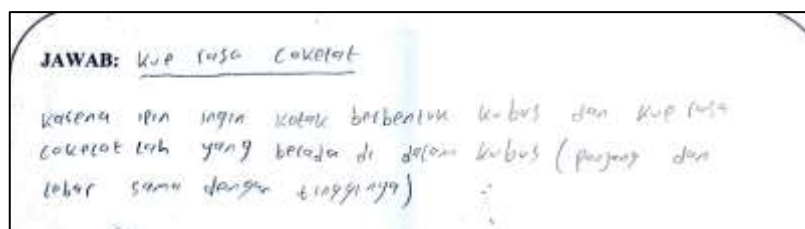 JAWAB: kue rasa cokelat
karena ipin ingin kotak berbentuk kubus dan kue rasa
cokelat lah yang berada di dalam kubus (panjang dan
lebar sama dengan tingginya)